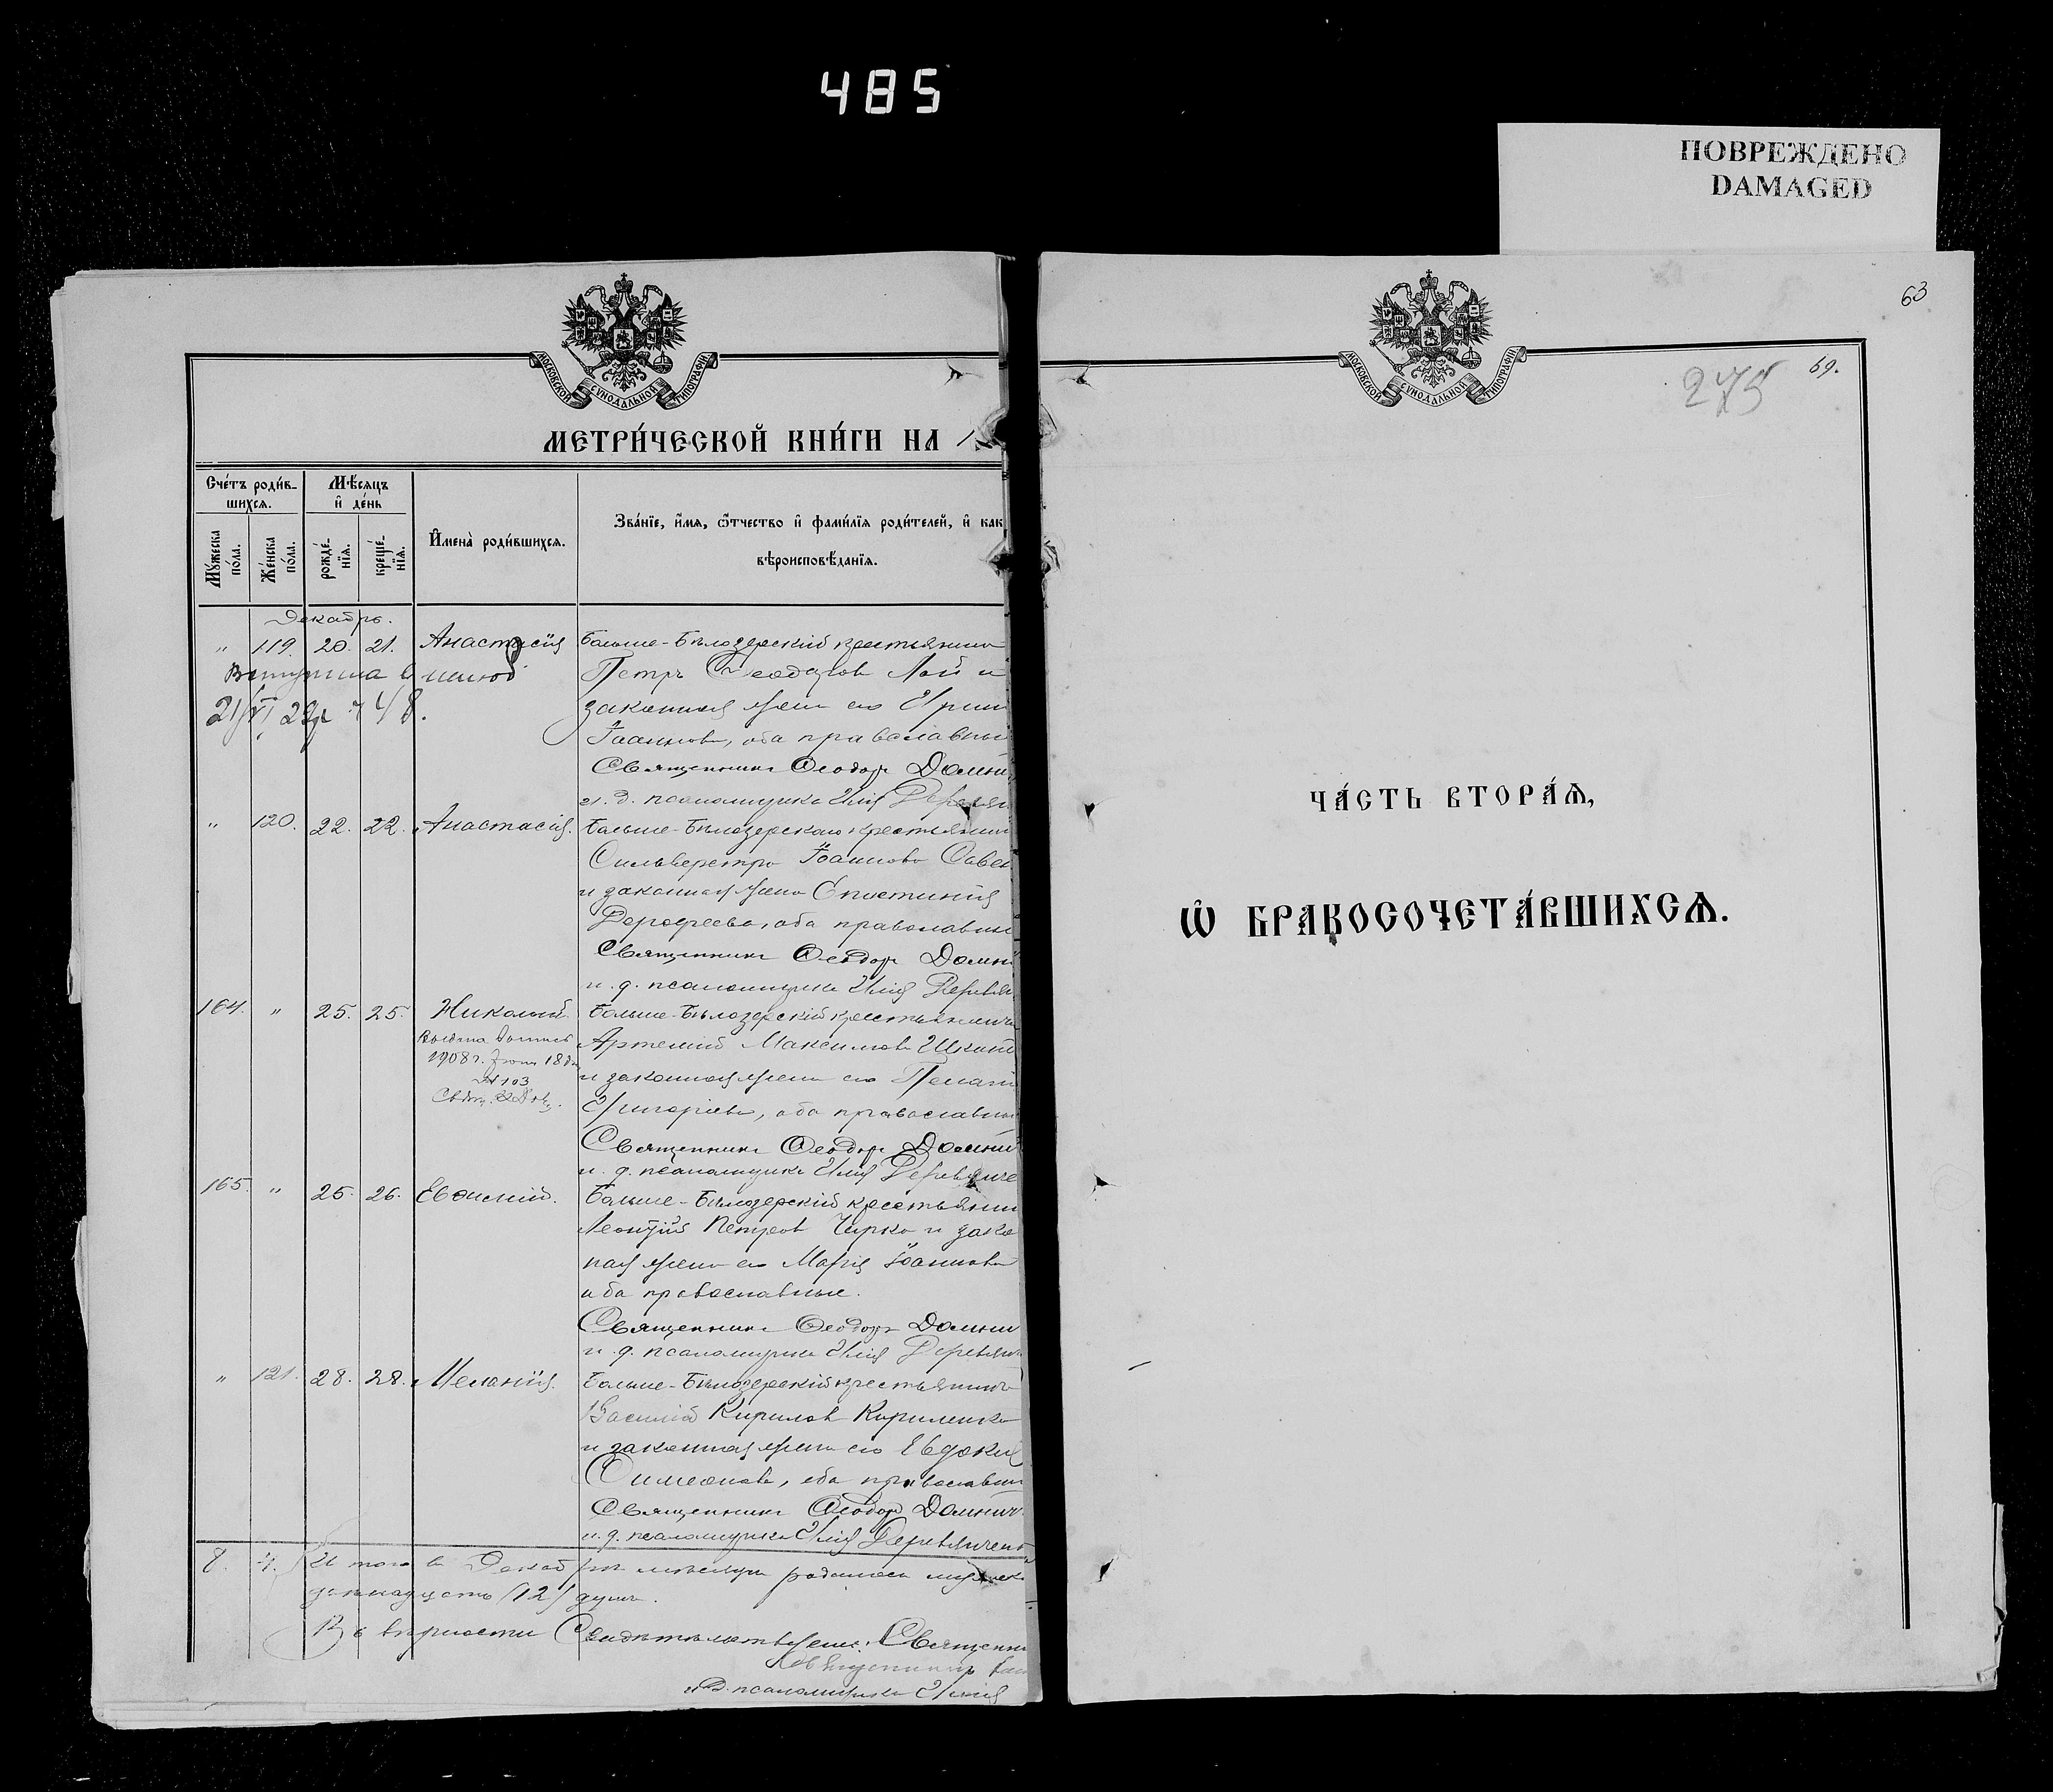 485
ПОВРЕЖДЕНО
DAMAGED
МОСКОВСКОЙ СѴНОДАЛЬНОЙ ТИПОГРАФІИ
МЕТРИ́ЧЕСКОЙ КНИ́ГИ НА 1
Сче́тъ роди́в-
шихсѧ.
Мѣ́сѧцъ
и҆ де́нь
Мꙋ́жеска
по́ла.
Же́нска
по́ла.
рожде́-
нїѧ.
креще́-
нїѧ.
И҆мена̀ роди́вшихсѧ.
Зва́нїе, и҆́мѧ, ѻ҆́тчество и҆ фами́лїѧ роди́телей, и҆ как
вѣроисповѣ́данїѧ.
Декабрь.
" 119. 20. 21. Анастасія Больше-Бѣлозерскій крестьянинъ
Петръ Ѳеодоровъ Лой и
21/VI 48.
законная жена его Ирин
Іоаннова, оба православны
Священникъ Ѳеодоръ Домни
и. д. псаломщика Илія Деревян
" 120. 22. 22. Анастасія. Больше-Бѣлозерскаго крестьянин
Сильвестръ Іоанновъ Савен
и законная жена
Дорофеева, оба православны
Священникъ Ѳеодоръ Домни
и. д. псаломщика Илія Деревян
164. " 25. 25. Николай. Больше-Бѣлозерскій крестьянинъ
1908 г. 18
№ 103
Артемій Максимовъ
и законная жена его Пелагі
Григоріева, оба православны
Священникъ Ѳеодоръ Домни
и. д. псаломщика Илія Деревянче
165. " 25. 26. Евѳимій. Больше-Бѣлозерскій крестьянин
Леонтій Петровъ Чирко и зако
ная жена его Марія Іоаннова
оба православные.
Священникъ Ѳеодоръ Домни
и. д. псаломщика Илія Деревянч
" 121. 28. 28. Меланія. Больше-Бѣлозерскій крестьянинъ
Василій Кириловъ Кириленко
и законная жена его Евдокія
Симеонова, оба православны
Священникъ Ѳеодоръ Домнич
и. д. псаломщика Илія Деревянченк
8. 4. Итого въ Декабрѣ мѣсяцѣ родилось
двѣнадцать (12) душъ.
Въ вѣрности Священни
и. Д. псаломщика Илія
63
МОСКОВСКОЙ СѴНОДАЛЬНОЙ ТИПОГРАФІИ
275
69.
ЧА́СТЬ ВТОРА́Ѧ,
Ѡ҆ БРАКОСОЧЕТА́ВШИХСѦ.